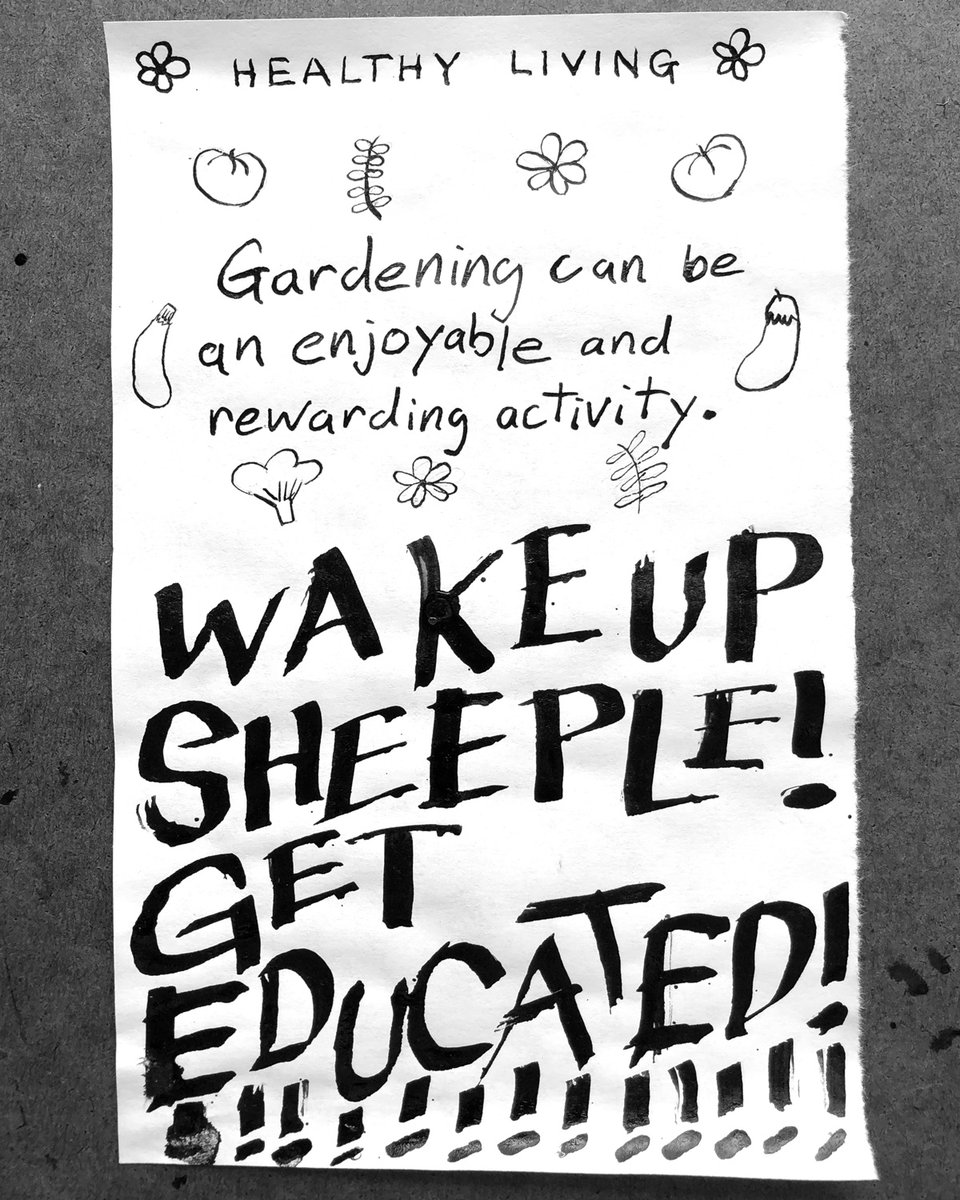 HEALTHY LIVING
Gardening can be
an enjoyable and
rewarding activity.
WAKE UP
SHEEPLE!
GET
EDUCATED!
!!!!!!!!!!!!!